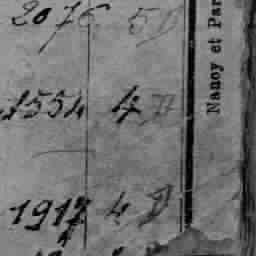 2076 5 D
1554 4 D
1917 4 D
Nancy et Par